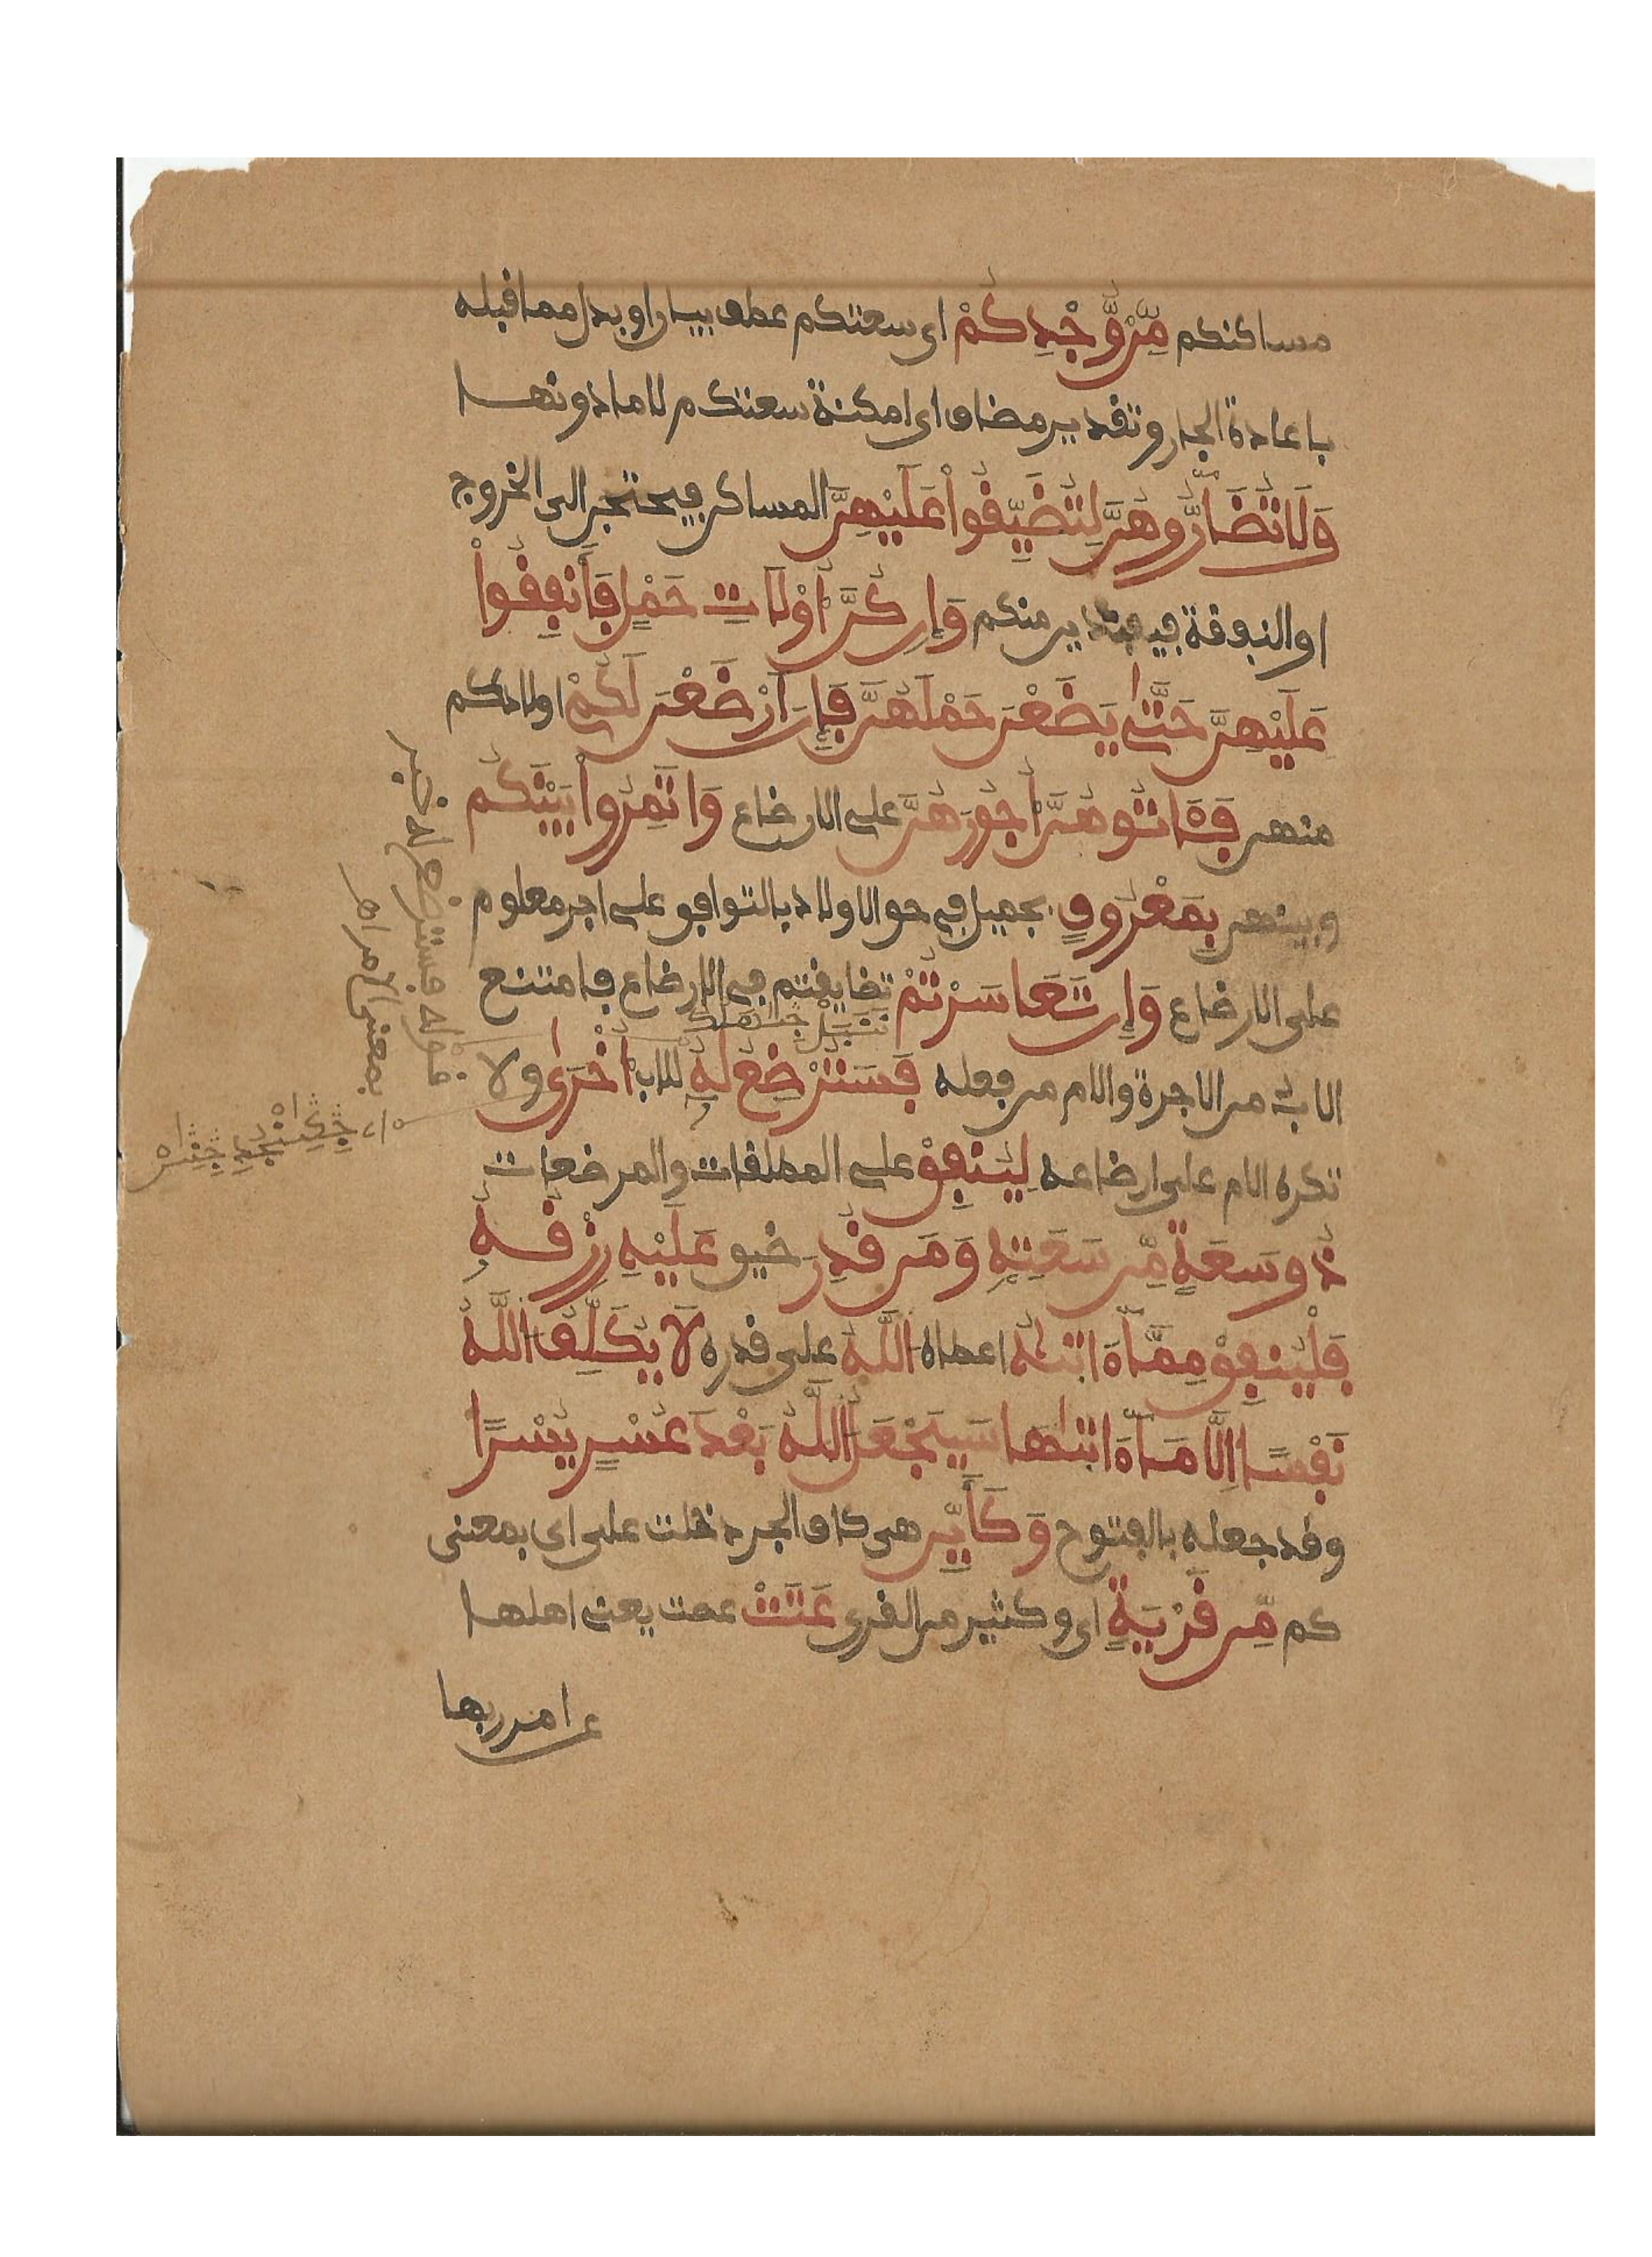 مساكنكم مِّن وُّجْدِكُمْ اى سعتكم عطف بيان او بدل مما قبله
باعادة الجار وتقدير مضاف اى امكنة سعتكم لا ما دونها
وَلَا تُضَآرُّوهُنَّ لِتُضَيِّقُواْ عَلَيْهِنَّ المساكن فيحتجن الى الخروج
او النفقة فيفتدين منكم وَإِن كُنَّ أُوْلَاتِ حَمْلٍ فَأَنفِقُواْ
عَلَيْهِنَّ حَتَّىٰ يَضَعْنَ حَمْلَهُنَّ فَإِنَ اَرْضَعْنَ لَكُمْ اولادكم
منهن فَـَٔاتُوهُنَّ أُجُورَهُنَّ على الارضاع وَاتَمِرُواْ بَيْنَكُم
وبينهن بِمَعْرُوفٍ بجميل فى حق الاولاد بالتوافق على اجر معلوم
على الارضاع وَإِن تَعَاسَرْتُمْ تضايقتم فى الارضاع فامتنع
الاب من الاجرة والام من فعله فَسَتُرْضِعُ لَهُ للاب أُخْرَىٰ ولا
تكره الام على ارضاعه لِيُنفِقْ على المطلقات والمرضعات
ذُو سَعَةٍ مِّن سَعَتِهِ وَمَن قُدِرَ ضيق عَلَيْهِ رِزْقُهُ
فَلْيُنفِقْ مِمَّآ ءَاتَىٰهُ اعطاه اللَّهُ على قدره لَا يُكَلِّفُ اللَّهُ
نَفْسًا اِلَّا مَآ ءَاتَىٰهَا سَيَجْعَلُ اللَّهُ بَعْدَ عُسْرٍ يُسْرًا
وقد جعله بالفتوح وَكَأَيِّن هى كاف الجر دخلت على اى بمعنى
كم مِّن قَرْيَةٍ اى وكثير من القرى عَتَتْ عصت يعنى اهلها
عن امر ربها
قوله فسترضع له خبر
بمعنى الامر اهـ